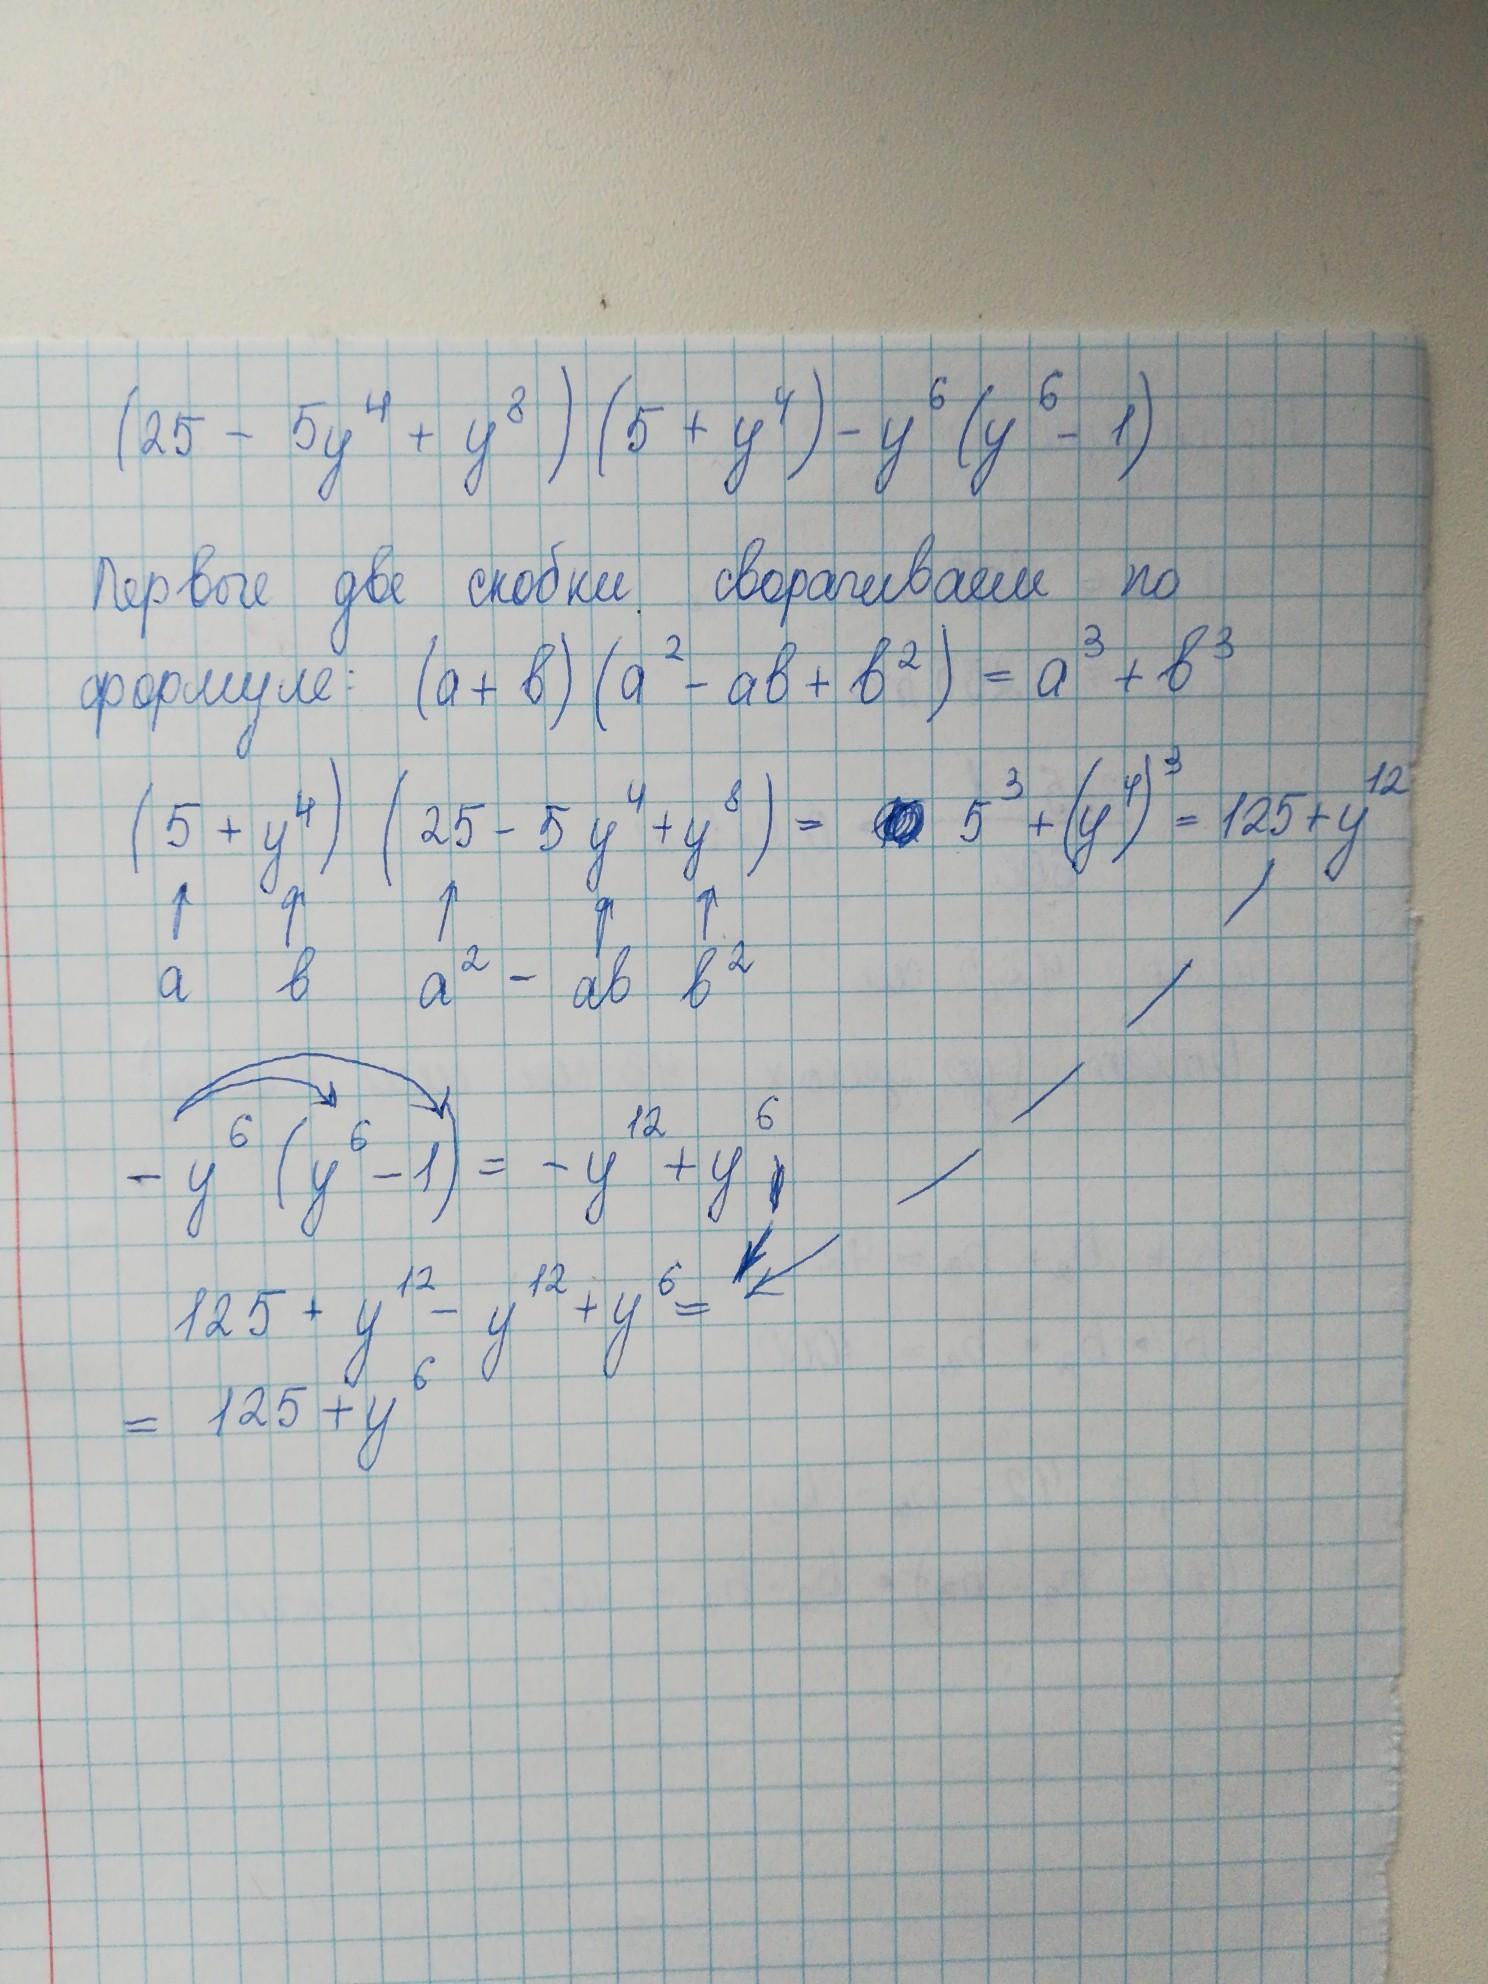 (25 - 5y⁴ + y⁸)(5 + y⁴) - y⁶(y⁶ - 1)
Первые две скобки сворачиваем по
формуле: (а + в)(а² - ав + в²) = а³ + в³
(5 + y⁴)(25 - 5y⁴ + y⁸) = 5³ + (y⁴)³ = 125 + y¹²
↑ ↑ ↑ ↑ ↑
а в а² - ав в²
- y⁶(y⁶ - 1) = - y¹² + y⁶
125 + y¹² - y¹² + y⁶ =
= 125 + y⁶